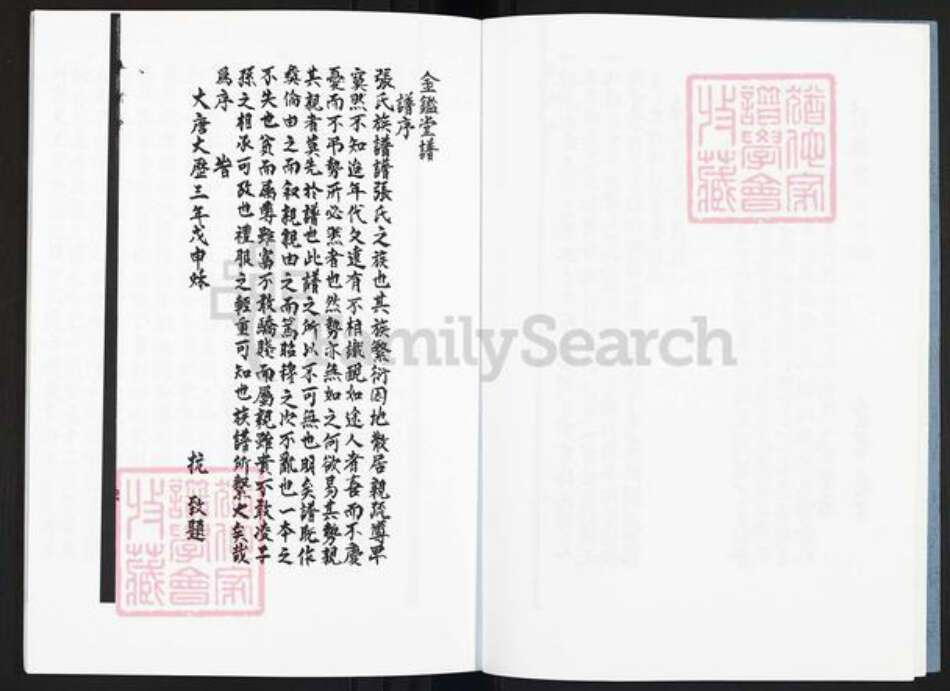 金鑑堂譜
譜序
張氏族譜譜張氏之族也其族繁衍因地散居親疏尊卑
寞然不知迨年代久遠有不相識覩如途人者喜而不慶
憂而不弔勢所必然者也然勢亦無如之何欲易其勢親
其親者莫先於譜也此譜之所以不可無也明矣譜既作
彝倫由之而叙親親由之而篤昭穆之次不亂也一本之
不失也貧而屬尊雖富不敢驕賤而屬親雖貴不敢凌子
孫之相承可攷也禮服之輕重可知也族譜所繫大矣哉
爲序 告
大唐大歷三年戊申秋
抗 敬題
猶他家
譜學會
收藏
猶他家
譜學會
收藏
FamilySearch